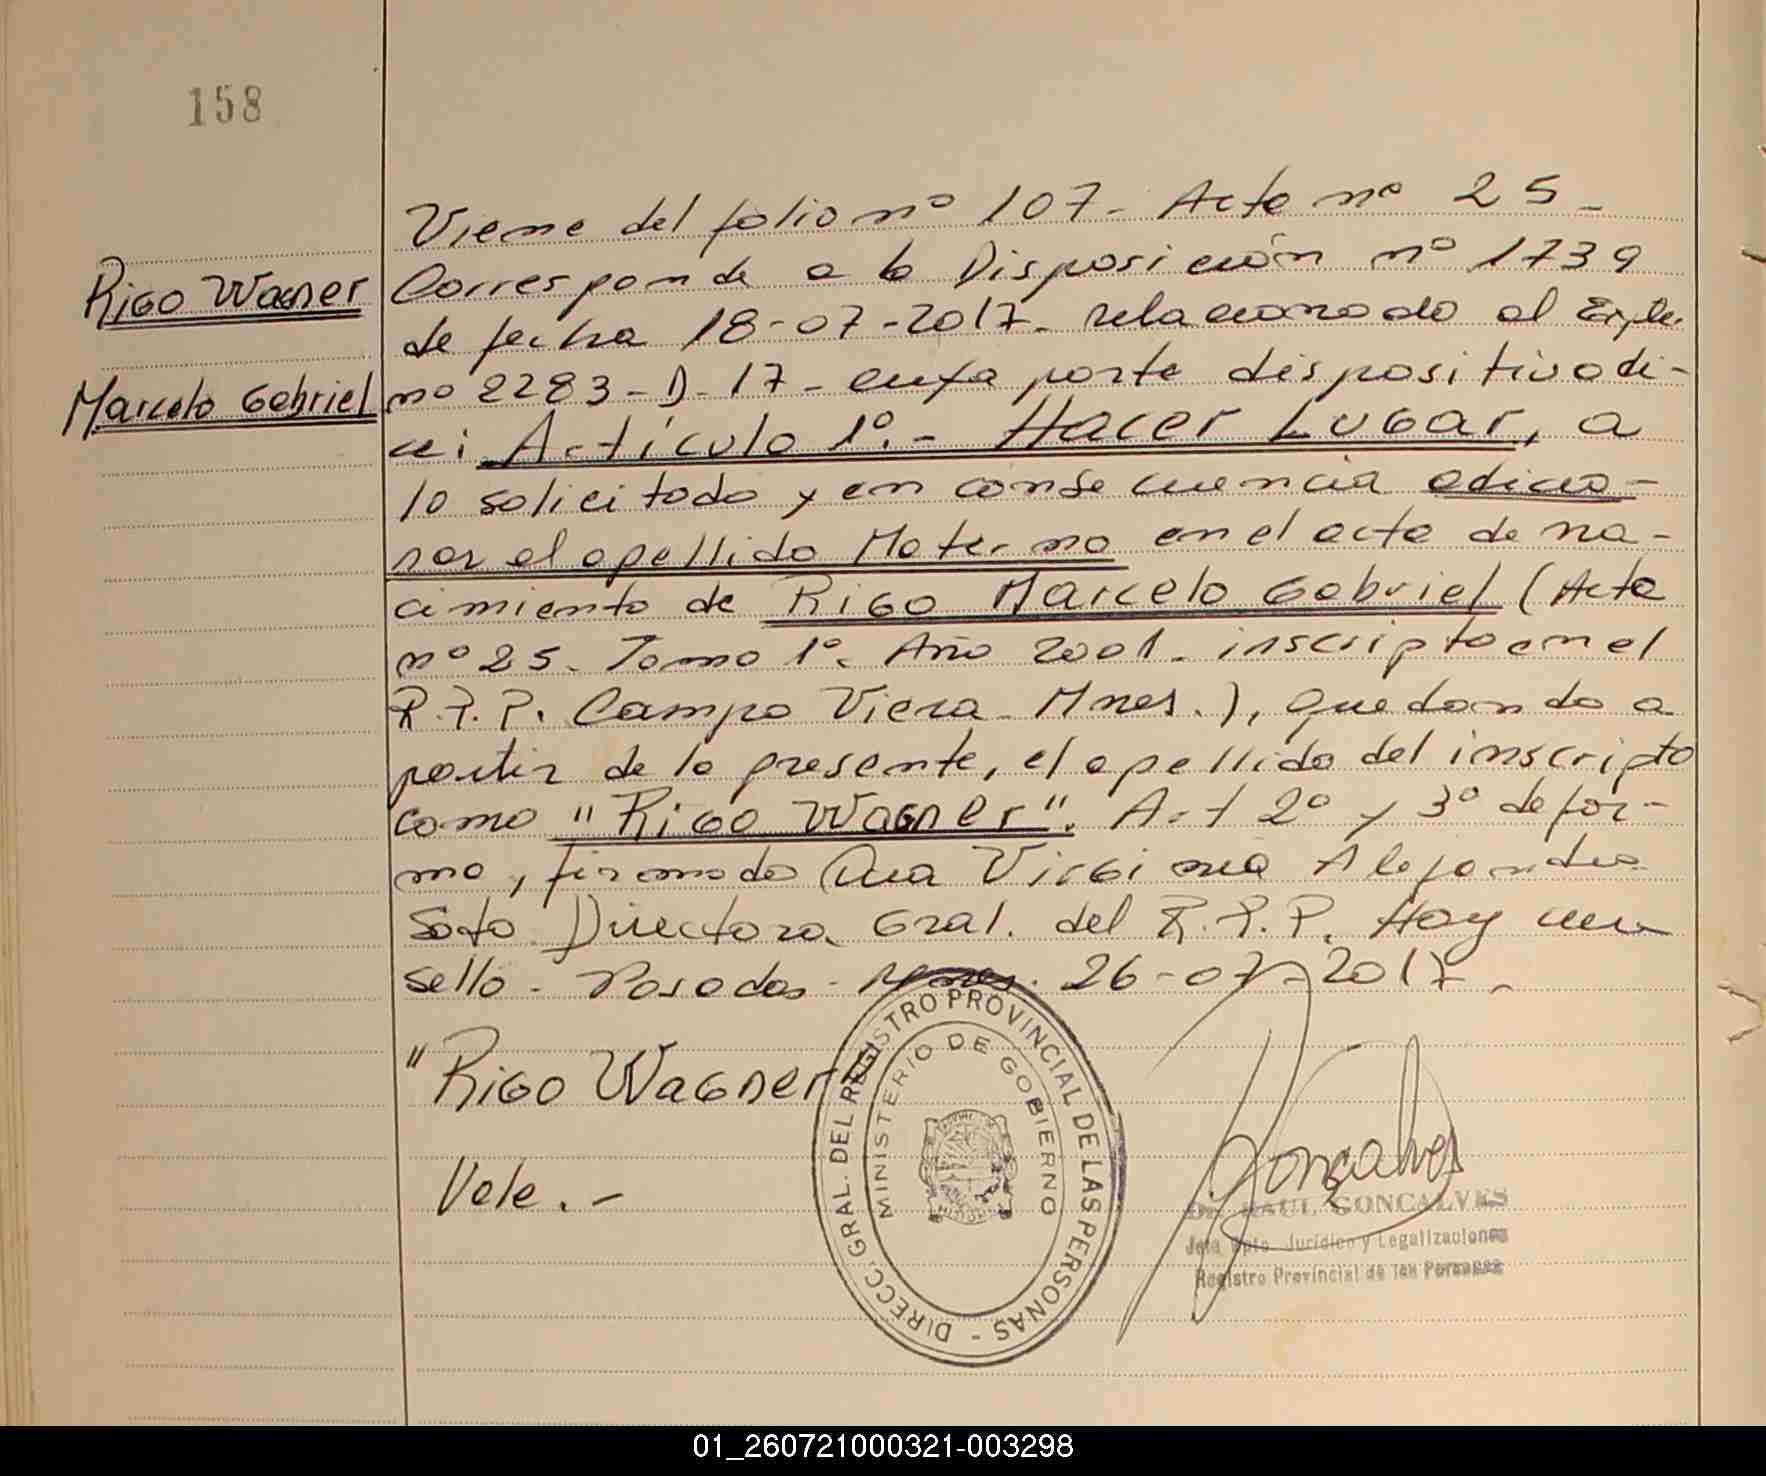 158
Viene del folio nº 107 - Acta nº 25 -
Rigo Wagner
Corresponde a la Disposición nº 1739
de fecha 18-07-2017 - relacionado al Expte.
Marcelo Gabriel
nº 2283 - D - 17 - cuya parte dispositiva di-
ce: Artículo 1º. - Hacer Lugar, a
lo solicitado y en consecuencia adicio-
nar el apellido Materno en el acta de na-
cimiento de Rigo Marcelo Gabriel (Acta
nº 25 - Tomo 1º. Año 2001 - inscripto en el
R.P.P. Campo Viera - Mnes.), quedando a
partir de la presente, el apellido del inscripto
como "Rigo Wagner". Art 2º y 3º de for-
ma, firmado Dra Virginia Alejandra
Soto Directora Gral. del R.P.P. Hay un
sello - Posadas - Mnes. 26-07-2017 -
"Rigo Wagner"
Vale. -
DIRECC. GRAL. DEL REGISTRO PROVINCIAL DE LAS PERSONAS -
MINISTERIO DE GOBIERNO
Gonçalves
Dr. RAUL GONCALVES
Jefe Dpto. Jurídico y Legalizaciones
Registro Provincial de las Personas
01_260721000321-003298